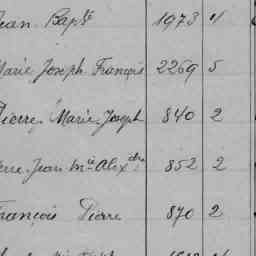 Jean Bapte 1973 4
Marie Joseph François 2269 5
Pierre Marie Joseph 840 2
Jean Mie Alexdre 852 2
François Pierre 870 2